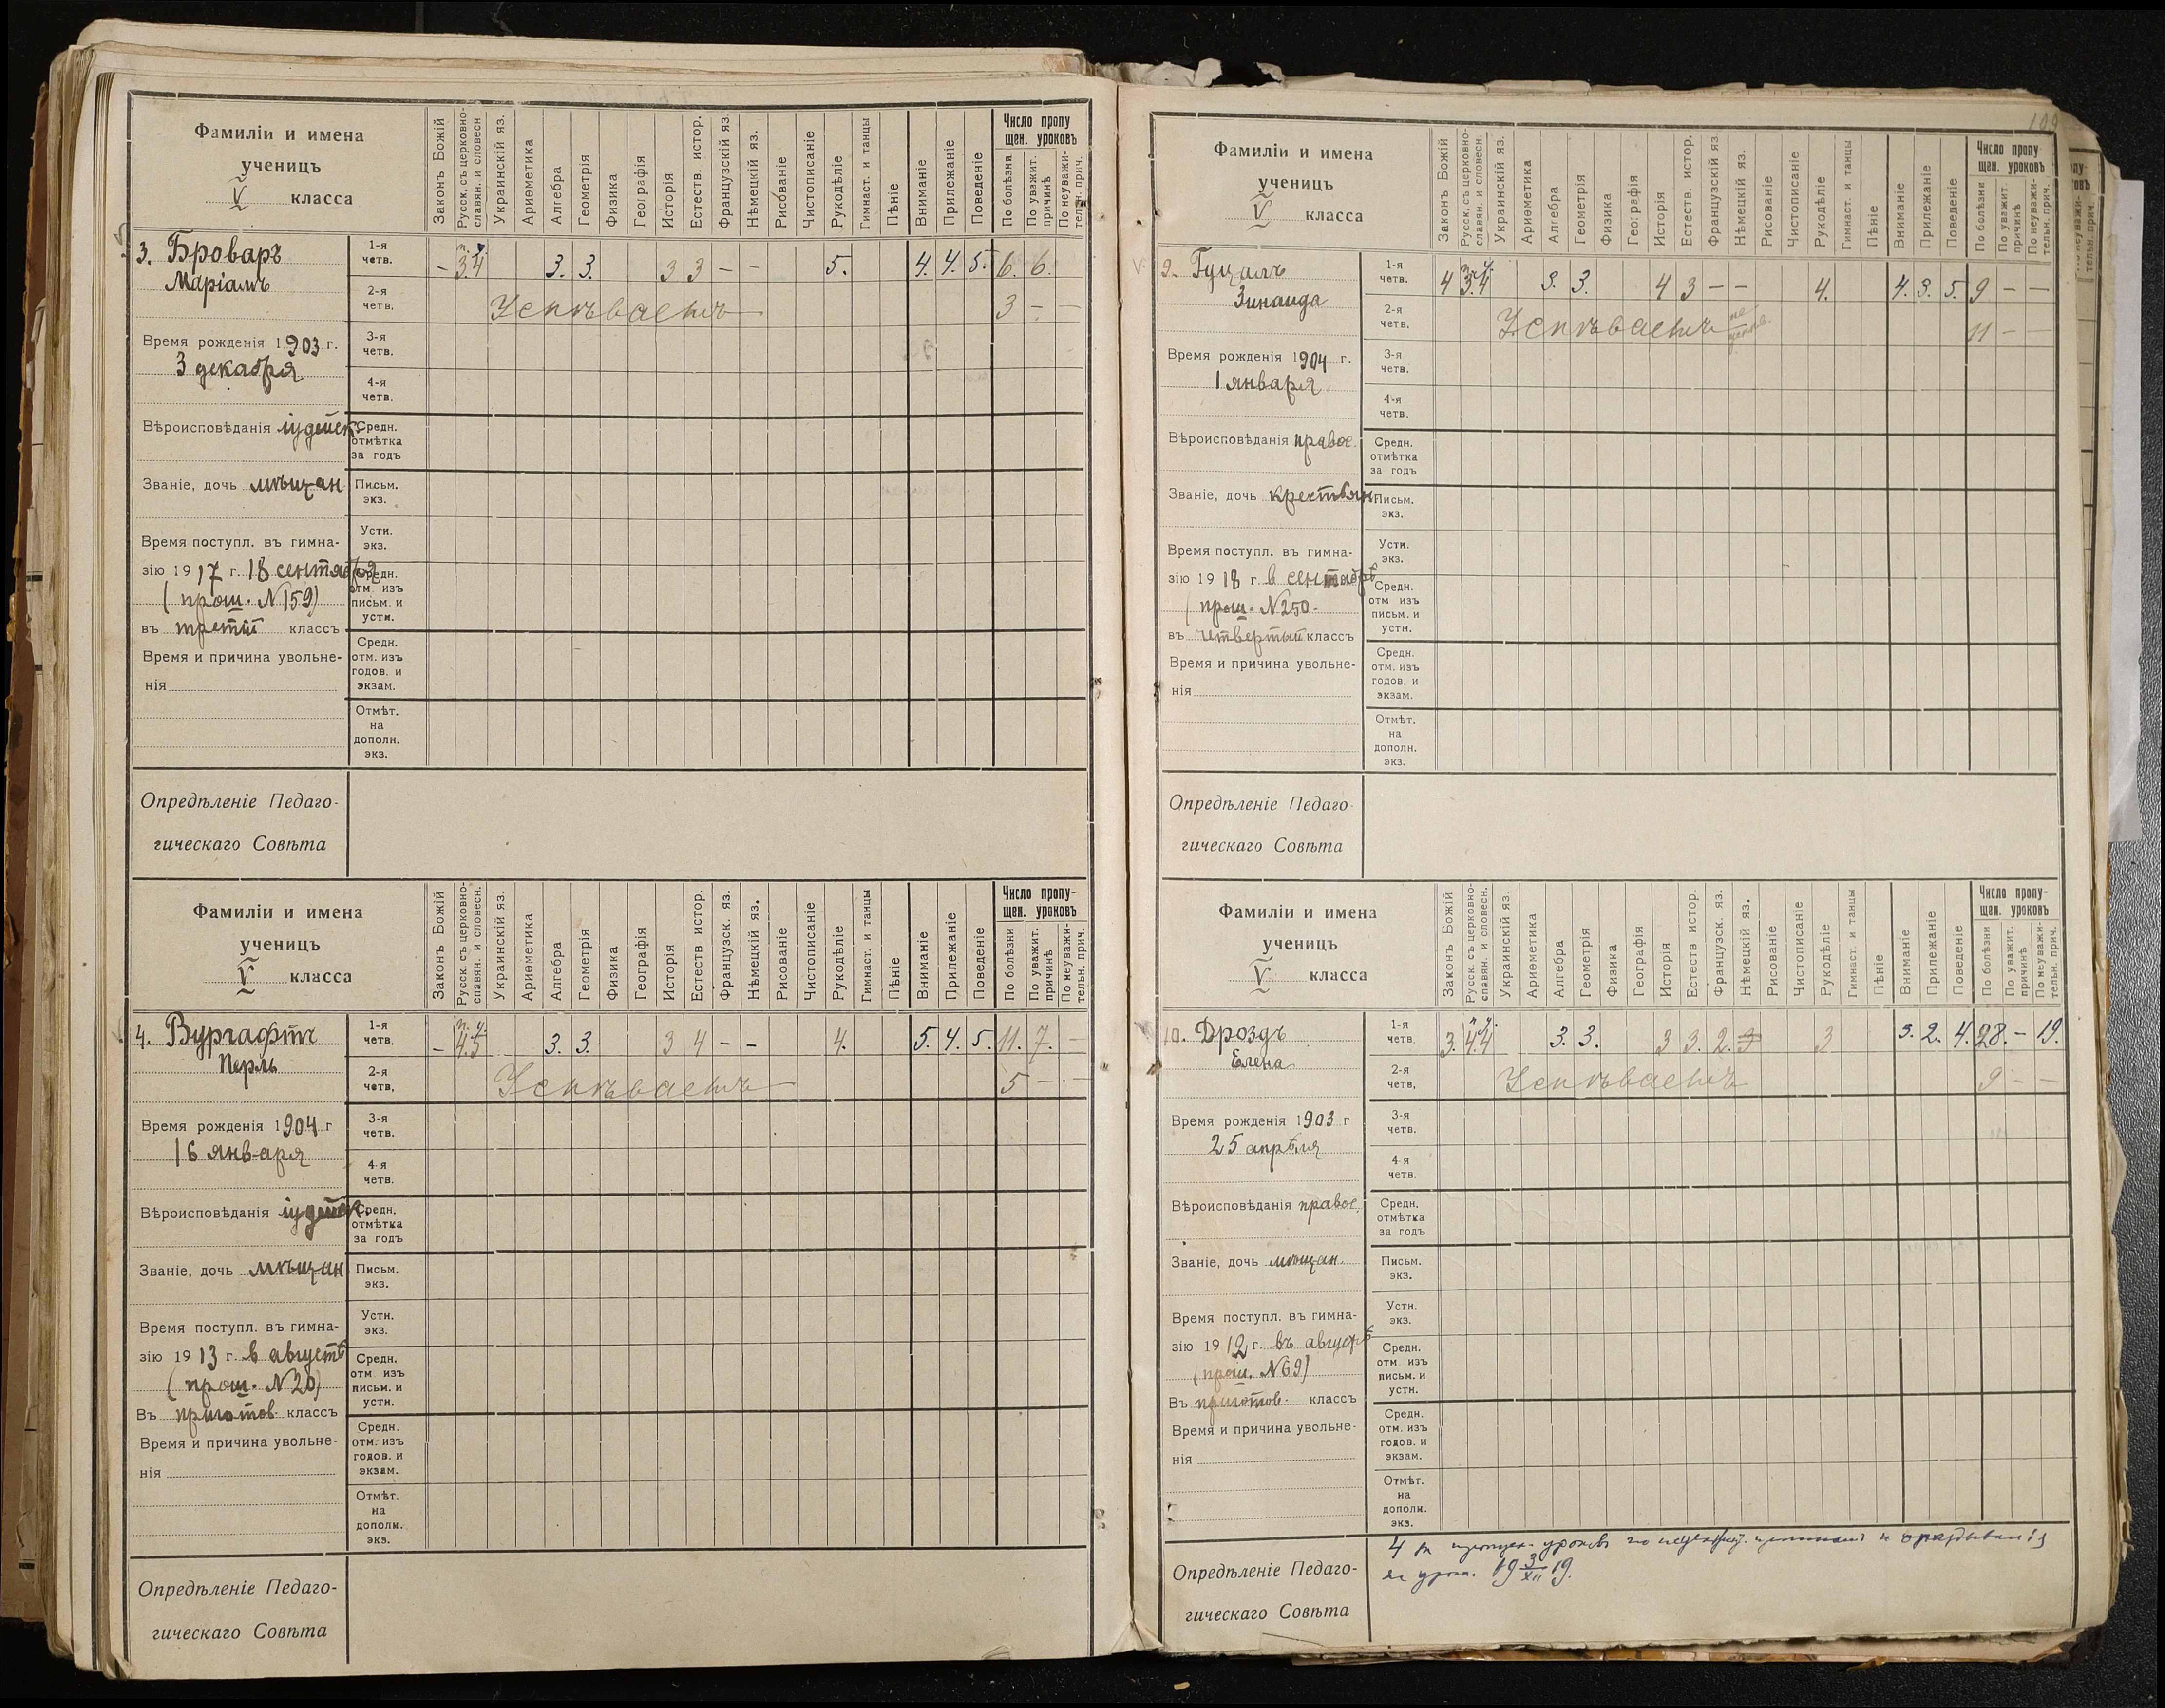 Фамиліи и имена
ученицъ
V класса
Законъ Божій
Русск. съ церковно-
славян. и словесн
Украинскій яз.
Ариѳметика
Алгебра
Геометрія
Физика
Географія
Исторія
Естеств. истор.
Французскій яз
Нѣмецкій яз.
Рисованіе
Чистописаніе
Рукодѣліе
Гимнаст. и танцы
Пѣніе
Вниманіе
Прилежаніе
Поведеніе
Число пропу
щен. уроковъ
По болѣзни
По уважит.
причинѣ
По неуважи-
тельн. прич.
3. Броваръ
Маріамъ
1-я
четв.
– 3 4 3. 3. 3 3 – – 5. 4. 4. 5. 6. 6.
2-я
четв.
Успѣваетъ 3 – –
Время рожденія 1903 г.
3 декабря
3-я
четв.
4-я
четв.
Вѣроисповѣданія іудейск.
Средн.
отмѣтка
за годъ
Званіе, дочь мѣщан
Письм.
экз.
Устн.
экз.
Время поступл. въ гимна-
зію 1917 г. 18 сентября
(прош. N 159)
въ третій классъ
Средн.
отм. изъ
письм. и
устн.
Время и причина увольне-
нія
Средн.
отм. изъ
годов. и
экзам.
Отмѣт.
на
дополн.
экз.
Опредѣленіе Педаго-
гическаго Совѣта
Фамиліи и имена
ученицъ
V класса
Законъ Божій
Русск. съ церковно-
славян. и словесн.
Украинскій яз.
Ариѳметика
Алгебра
Геометрія
Физика
Географія
Исторія
Естеств истор.
Французск. яз.
Нѣмецкій яз.
Рисованіе
Чистописаніе
Рукодѣліе
Гимнаст. и танцы
Пѣніе
Вниманіе
Прилежаніе
Поведеніе
Число пропу-
щен. уроковъ
По болѣзни
По уважит.
причинѣ
По неуважи-
тельн. прич.
4. Вургафтъ
Перль
1-я
четв.
– 4 5 3. 3. 3 4 – – 4. 5. 4. 5. 11. 7. –
2-я
четв,
Успѣваетъ 5 – –
Время рожденія 1904 г
16 января
3-я
четв.
4-я
четв.
Вѣроисповѣданія іудейск.
Средн.
отмѣтка
за годъ
Званіе, дочь мѣщан
Письм.
экз.
Устн.
экз.
Время поступл. въ гимна-
зію 1913 г. в августѣ
(прош. N 20)
Въ приготов. классъ
Средн.
отм изъ
письм. и
устн.
Время и причина увольне-
нія
Средн.
отм. изъ
годов. и
экзам.
Отмѣт.
на
дополн.
экз.
Опредѣленіе Педаго-
гическаго Совѣта
Фамиліи и имена
ученицъ
V класса
Законъ Божій
Русск. съ церковно-
славян. и словесн.
Украинскій яз.
Ариѳметика
Алгебра
Геометрія
Физика
Географія
Исторія
Естеств. истор.
Французскій яз
Нѣмецкій яз.
Рисованіе
Чистописаніе
Рукодѣліе
Гимнаст. и танцы
Пѣніе
Вниманіе
Прилежаніе
Поведеніе
Число пропу
щен. уроковъ
По болѣзни
По уважит.
причинѣ
По неуважи-
тельн. прич.
9. Гуцалъ
Зинаида
1-я
четв.
4 3. 4 3. 3. 4 3 – – 4. 4. 3. 5. 9 – –
2-я
четв.
Успѣваетъ 11 – –
Время рожденія 1904 г.
1 января
3-я
четв.
4-я
четв.
Вѣроисповѣданія правос.
Средн.
отмѣтка
за годъ
Званіе, дочь крестьян
Письм.
экз.
Устн.
экз.
Время поступл. въ гимна-
зію 1918 г. в сентябрѣ
(прош. N 250.
въ четвертый классъ
Средн.
отм изъ
письм. и
устн.
Время и причина увольне-
нія
Средн.
отм. изъ
годов. и
экзам.
Отмѣт.
на
дополн.
экз.
Опредѣленіе Педаго-
гическаго Совѣта
Фамиліи и имена
ученицъ
V класса
Законъ Божій
Русск. съ церковно-
славян. и словесн.
Украинскій яз.
Ариѳметика
Алгебра
Геометрія
Физика
Географія
Исторія
Естеств истор.
Французск. яз.
Нѣмецкій яз.
Рисованіе
Чистописаніе
Рукодѣліе
Гимнаст. и танцы
Пѣніе
Вниманіе
Прилежаніе
Поведеніе
Число пропу-
щен. уроковъ
По болѣзни
По уважит.
причинѣ
По неуважи-
тельн. прич.
10. Дроздъ
Елена
1-я
четв.
3. 4 4 3. 3. 3 3. 2. 3 3 3. 2. 4. 28. – 19.
2-я
четв,
Успѣваетъ 9 – –
Время рожденія 1903 г
25 апрѣля
3-я
четв.
4-я
четв.
Вѣроисповѣданія правос.
Средн.
отмѣтка
за годъ
Званіе, дочь мѣщан.
Письм.
экз.
Устн.
экз.
Время поступл. въ гимна-
зію 1912 г. въ августѣ
(прош. N 69)
Въ приготов. классъ
Средн.
отм изъ
письм. и
устн.
Время и причина увольне-
нія
Средн.
отм. изъ
годов. и
экзам.
Отмѣт.
на
дополн.
экз.
Опредѣленіе Педаго-
гическаго Совѣта
4 за пропуск. уроковъ по неуважит. причинамъ и опаздыванія
на уроки. 19 3/XII 19.